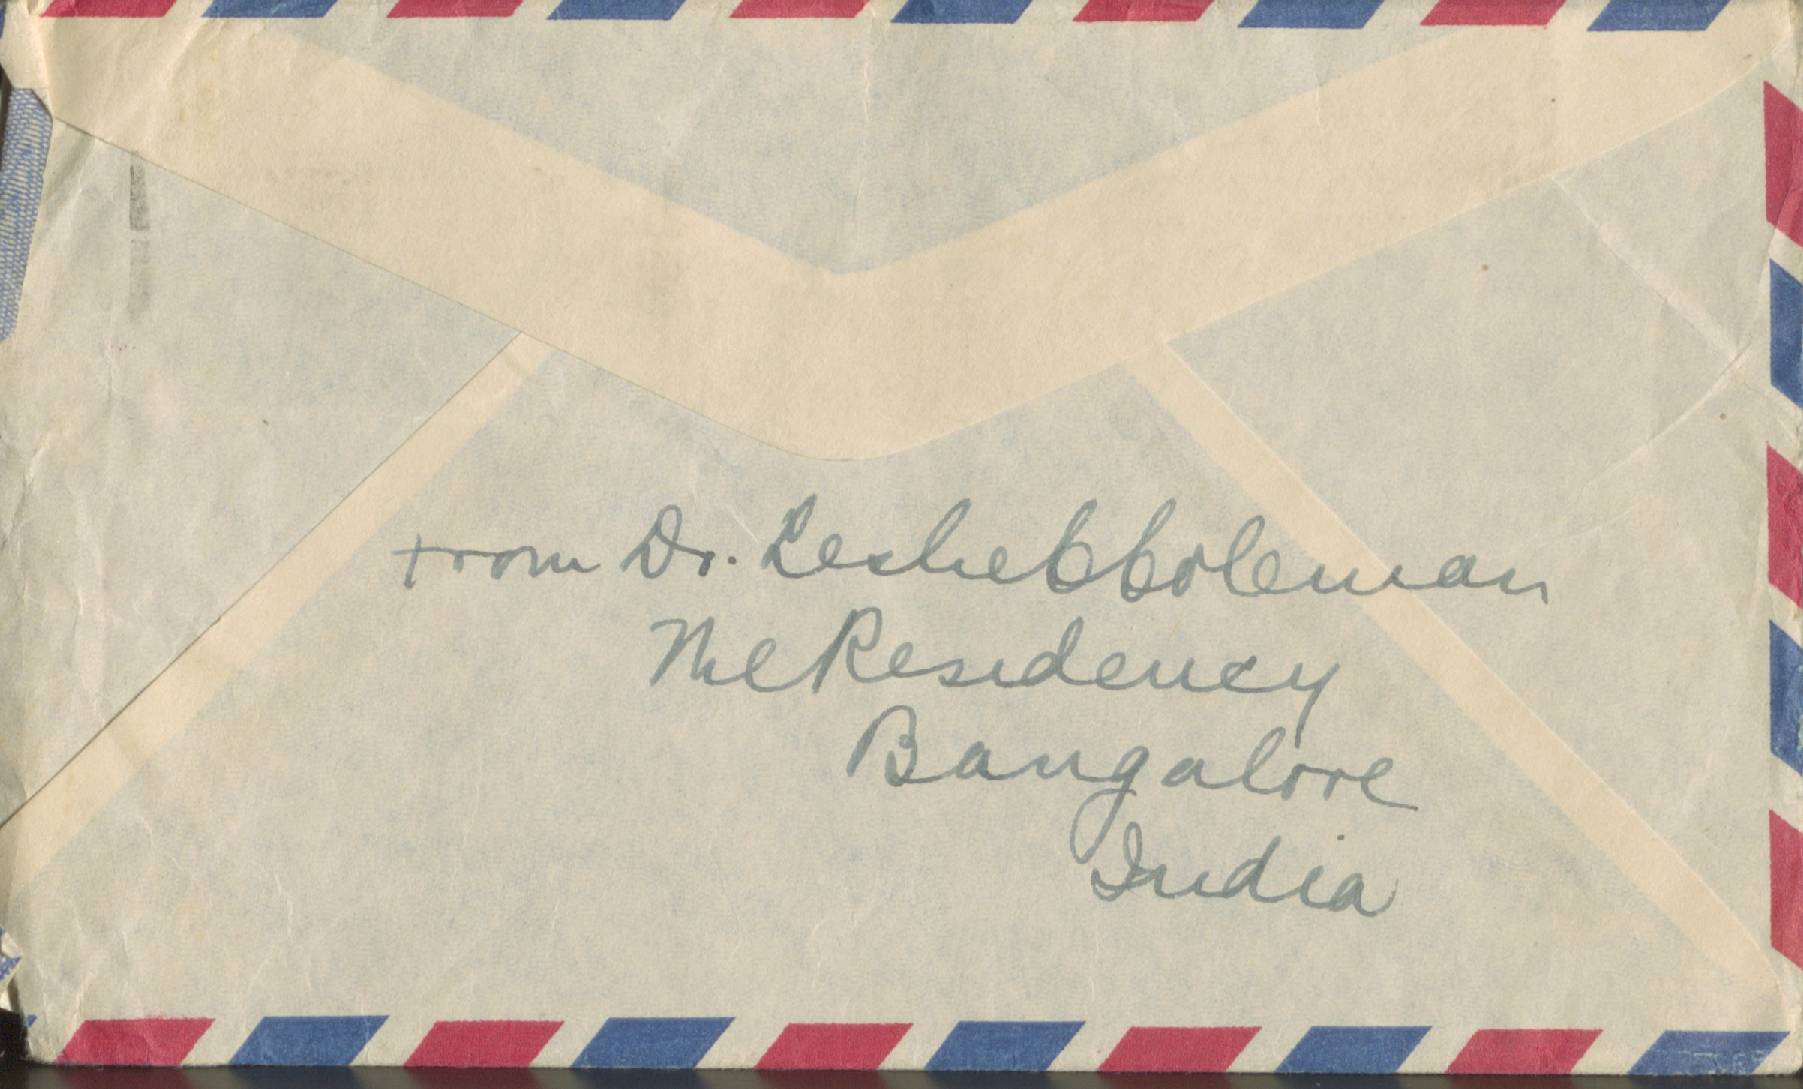 From Dr. Leslie C Coleman
The Residency
Bangalore
India